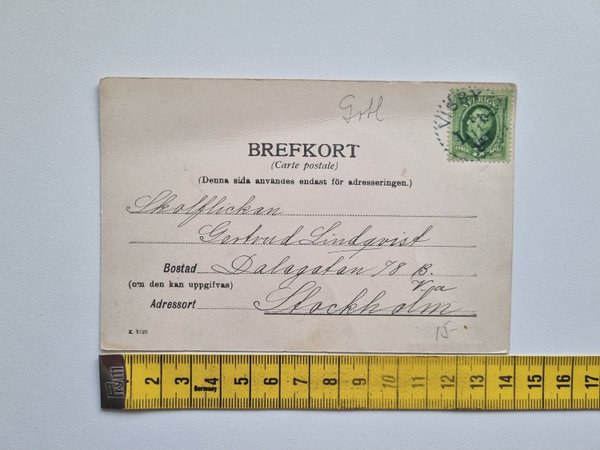 Grtl
VISBY
SVERIGE
BREFKORT
(Carte postale)
(Denna sida användes endast för adresseringen.)
Skolflickan
Gertrud Lindqvist
Bostad Dalagatan 78 B.
(om den kan uppgifvas) V,a
Adressort Stockholm
15-
K. 9790
2 3 4 5 6 7 8 9 10 11 12 13 14 15 16 17
Germany